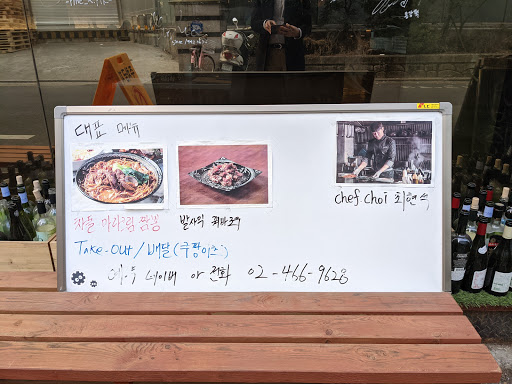 대표 메뉴
차돌 마라크림 짬뽕
발사믹
chef.choi 최현석
Take-out / 배달 (쿠팡이츠)
예약 네이버 or 전화 02-466-9628